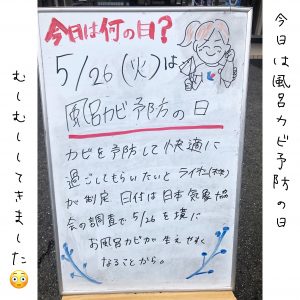 今日は風呂カビ予防の日
今日は何の日?
5/26(火)は
風呂カビ予防の日
カビを予防して快適に
過ごしてもらいたいとライオン(株)
が制定 日付は日本気象協
会の調査で5/26を境に
お風呂カビが生えやすく
なることから。
むしむししてきました😳